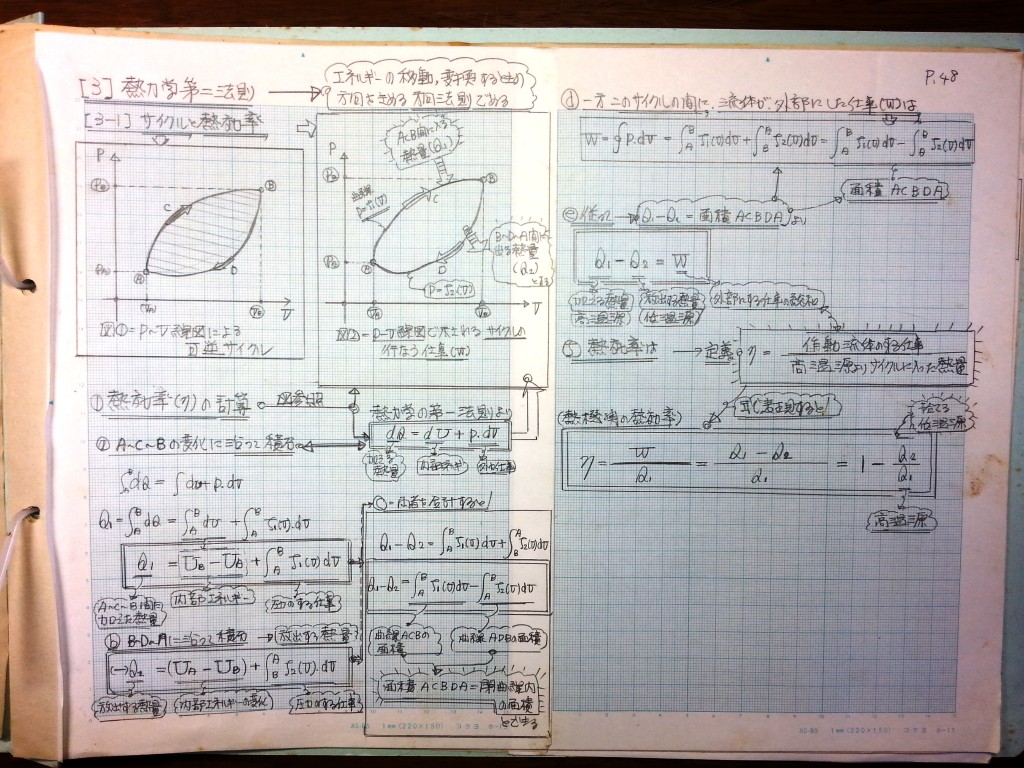 P.48
[3] 熱力学第二法則
エネルギーの移動,変換するときの
方向をきめる方向法則である
[3-1] サイクルと熱効率
P
PB
PA
A
B
C
D
VA
VB
V
図①=P~V線図による
可逆サイクル
ACB間に入る
熱量(Q1)
P
PB
PA
曲線
P=f1(V)
A
B
C
D
B~D~A間に
出る熱量
(Q2)
とする
P=f2(V)
VA
VB
V
図②=P~V線図で表される サイクルの
行なう仕事(W)
① 熱効率(η)の計算
図参照
熱力学の第一法則より
dQ = dU + P.dV
加える
熱量
内部エネルギー
外部仕事
ⓐ A~C~Bの変化に沿って積分
∫dQ = ∫dU + P.dV
Q1 = ∫A^B dQ = ∫A^B dU + ∫A^B f1(V).dV
Q1 = UB - UB + ∫A^B f1(V)dV
A~C~B間に
加えた熱量
内部エネルギー
圧力のする仕事
ⓑ B~D~Aに沿って積分
放出する熱量
(-)Q2 = (UA - UB) + ∫B^A f2(V).dV
放出する熱量
内部エネルギーの変化
圧力のする仕事
ⓒ 両者を合計すると!
Q1 - Q2 = ∫A^B f1(V)dV + ∫B^A f2(V)dV
Q1 - Q2 = ∫A^B f1(V)dV - ∫A^B f2(V)dV
曲線ACBの
面積
曲線ADBの面積
面積ACBDA=閉曲線内
の面積
とできる
ⓓ 一方このサイクルの間に,流体が外部にした仕事(W)は
W = ∮P.dV = ∫A^B f1(V)dV + ∫B^A f2(V)dV = ∫A^B f1(V)dV - ∫A^B f2(V)dV
面積ACBDA
ⓔ 従って Q1-Q2 = 面積ACBDA より
Q1 - Q2 = W
加える熱量
高温源
放出する熱量
低温源
外部にする仕事の総和
熱効率は
定義
η = 作動流体のする仕事 / 高温源よりサイクルに入った熱量
(熱機関の熱効率)
η = W/Q1 = Q1 - Q2/Q1 = 1 - Q2/Q1
捨てる
低温源
高温源
1mm(220×160)
コクヨ
1mm(220×160)
コクヨ